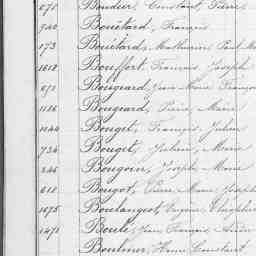 671 Boudier, Constant, Pierre
740 Bouëtard, François
173 Bouëtard, Mathurin Paul M
1612 Bouffort, François Joseph
671 Bougeard, Jean Marie Franço
1126 Bougeard, Pierre Marie
1044 Bouget, François Julien
734 Bouget, Julien, Marie
246 Bougoin, Joseph, Marie
611 Bougot, Pierre Marie Joseph
1675 Boulangeot, Eugène Théophile
1471 Boulé, Jean François André
Constant